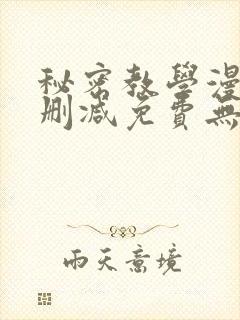 秘密教學漫
刪減免費無
雨天意境